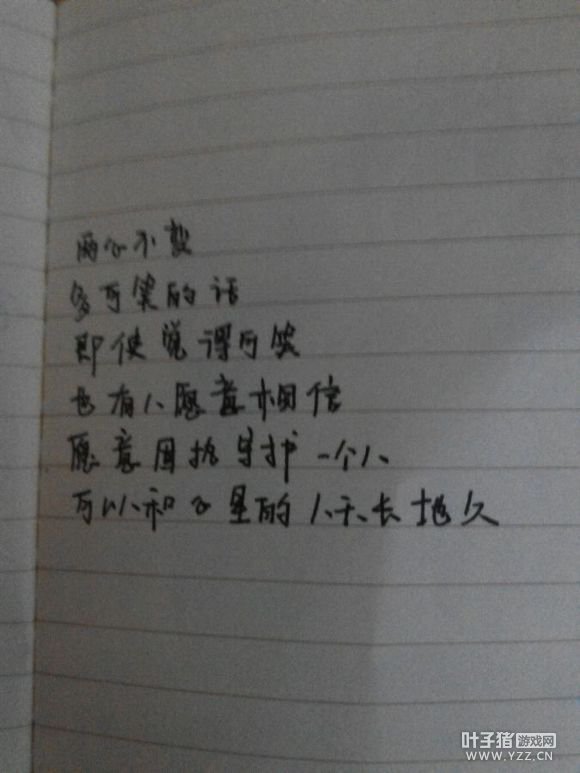 两心不契
多可笑的话
即使觉得可笑
也有人愿意相信
愿意固执守护一个人
可以和心里的人天长地久
叶子猪游戏网
WWW.YZZ.CN